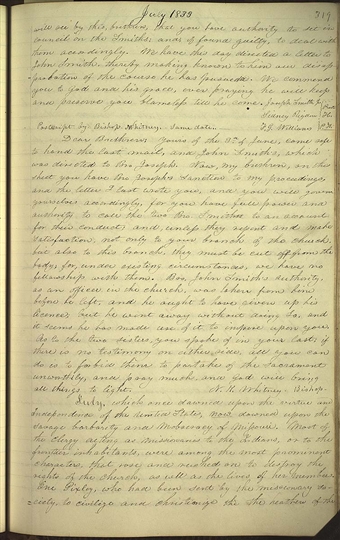 July 1833
319
will see by this, brethren, that you have authority to set in
council on the Smiths; and if found guilty, to deal with
them accordingly. We have this day directed a letter to
John Smith, thereby making known to him our disap-
probation of the course he has pursued. We commend
you to God and his grace, ever praying he will keep
and preserve you blameless till he come. Joseph Smith Jr.
Sidney Rigdon
F. G. Williams
Postscript by Bishop Whitney. Same date.
Dear Brethren: Yours of the 3d of June, came safe
to hand the last mail, and John Smith's, which
was directed to Bro. Joseph. Now, my brethren, on this
sheet you have Bro. Joseph's sanction to my proceedings,
and the letter I last wrote you, and you will govern
yourselves accordingly, for you have full power and
authority to call the two Bro. Smiths to an account
for their conduct; and, unless they repent and make
satisfaction, not only to your branch of the church,
but also to this branch, they must be cut off from the
body, for, under existing circumstances, we have no
fellowship with them. Bro. John Smith's authority,
as an officer in the church, was taken from him
before he left, and he ought to have given up his
licence; but he went away without doing so, and
it seems he has made use of it to impose upon you.
As to the two sisters, you spoke of in your last; if
there is no testimony on either side, all you can
do is to forbid them to partake of the sacrament
unworthily, and pray much, and God will bring
all things to light. N. K. Whitney, Bishop.
July, which once dawned upon the virtue and
Independence of the United States, now dawned upon the
savage barbarity and Mobocracy of Missouri. Most of
the clergy acting as Missionaries to the Indians, or to the
frontier inhabitants, were among the most prominent
characters, that rose and rushed on to destroy the
rights of the church, as well as the lives of her members.
One Pixley, who had been sent by the missionary so-
-ciety, to civilize and christianize the heathen of the